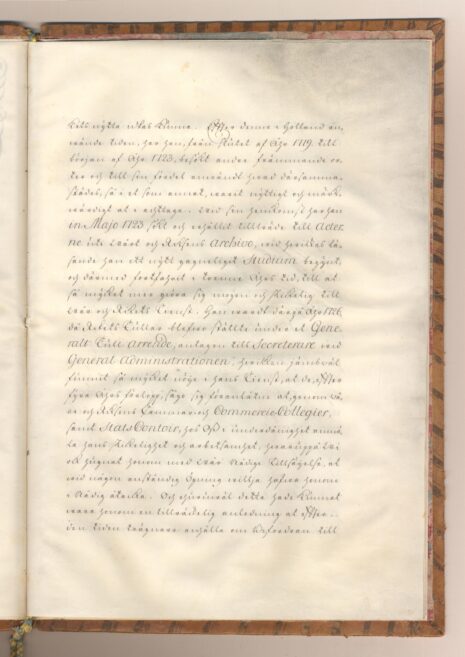 kets nytta idkas kunna. Efter denne i Holland an,
wände tiden, har han, från slutet af Åhr 1719. till
början af Åhr 1723, besökt andre främmande or,
ter och till sin fördel användt hwad därsamma,
städes, så i ett som annat, warit nyttigt och märk,
wärdigt at i achttaga. wid sin hemkomst har han
in Majo 1723 sökt och erhållet tillträde till Acter,
ne uti Wårt och Riksens Archive, wid hwilkas lä,
sande han ett nytt gagneligit Studium begynt,
och därmed fortfarit i trenne Åhrs tid, till at
så mycket mer giöra sig mogen och skickelig till
wår och Rikets tienst. Han wardt derpå Åhr 1726,
då Rikets Tullar blefwo stälte under et Gene-
ralt Tull Arrende, antagen till Secreterare wid
General Administrationen, hwilken
funnit så mycket nöije i hans tienst, at de, efter
fyra Åhrs förlopp, sågo sig föranlåtne at, genom Wå,
re och Riksens Cammar och Commercie Collegier,
samt Stats Contoir, hos Oss i underdånighet anmä,
la hans skickelighet och arbetsamhet, hwaruppå Wi
ock hugnat honom med Wår Nådige tillsäijelse, at
wid någon anständig Öpning willja hafwa honom
i Nådig åtanka. Och ehuruwäl dette hade kunnat
wara honom en tillräckelig anledning at efter
den tiden trägnare anhålla om befordran till